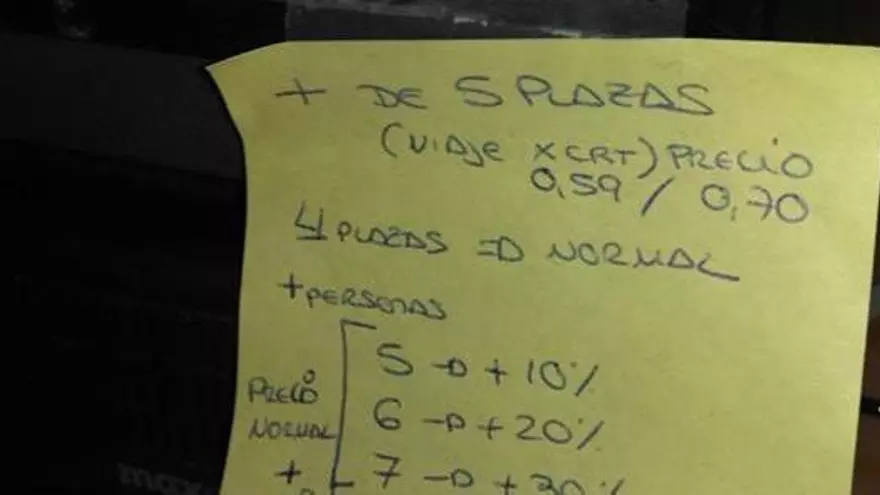 + DE 5 PLAZAS
(VIAJE X CRT) PRECIO
0,59 / 0,70
4 PLAZAS => NORMAL
+ PERSONAS
5 -> + 10%
PRECIO
6 -> + 20%
NORMAL
+ 7 -> + 30%
max